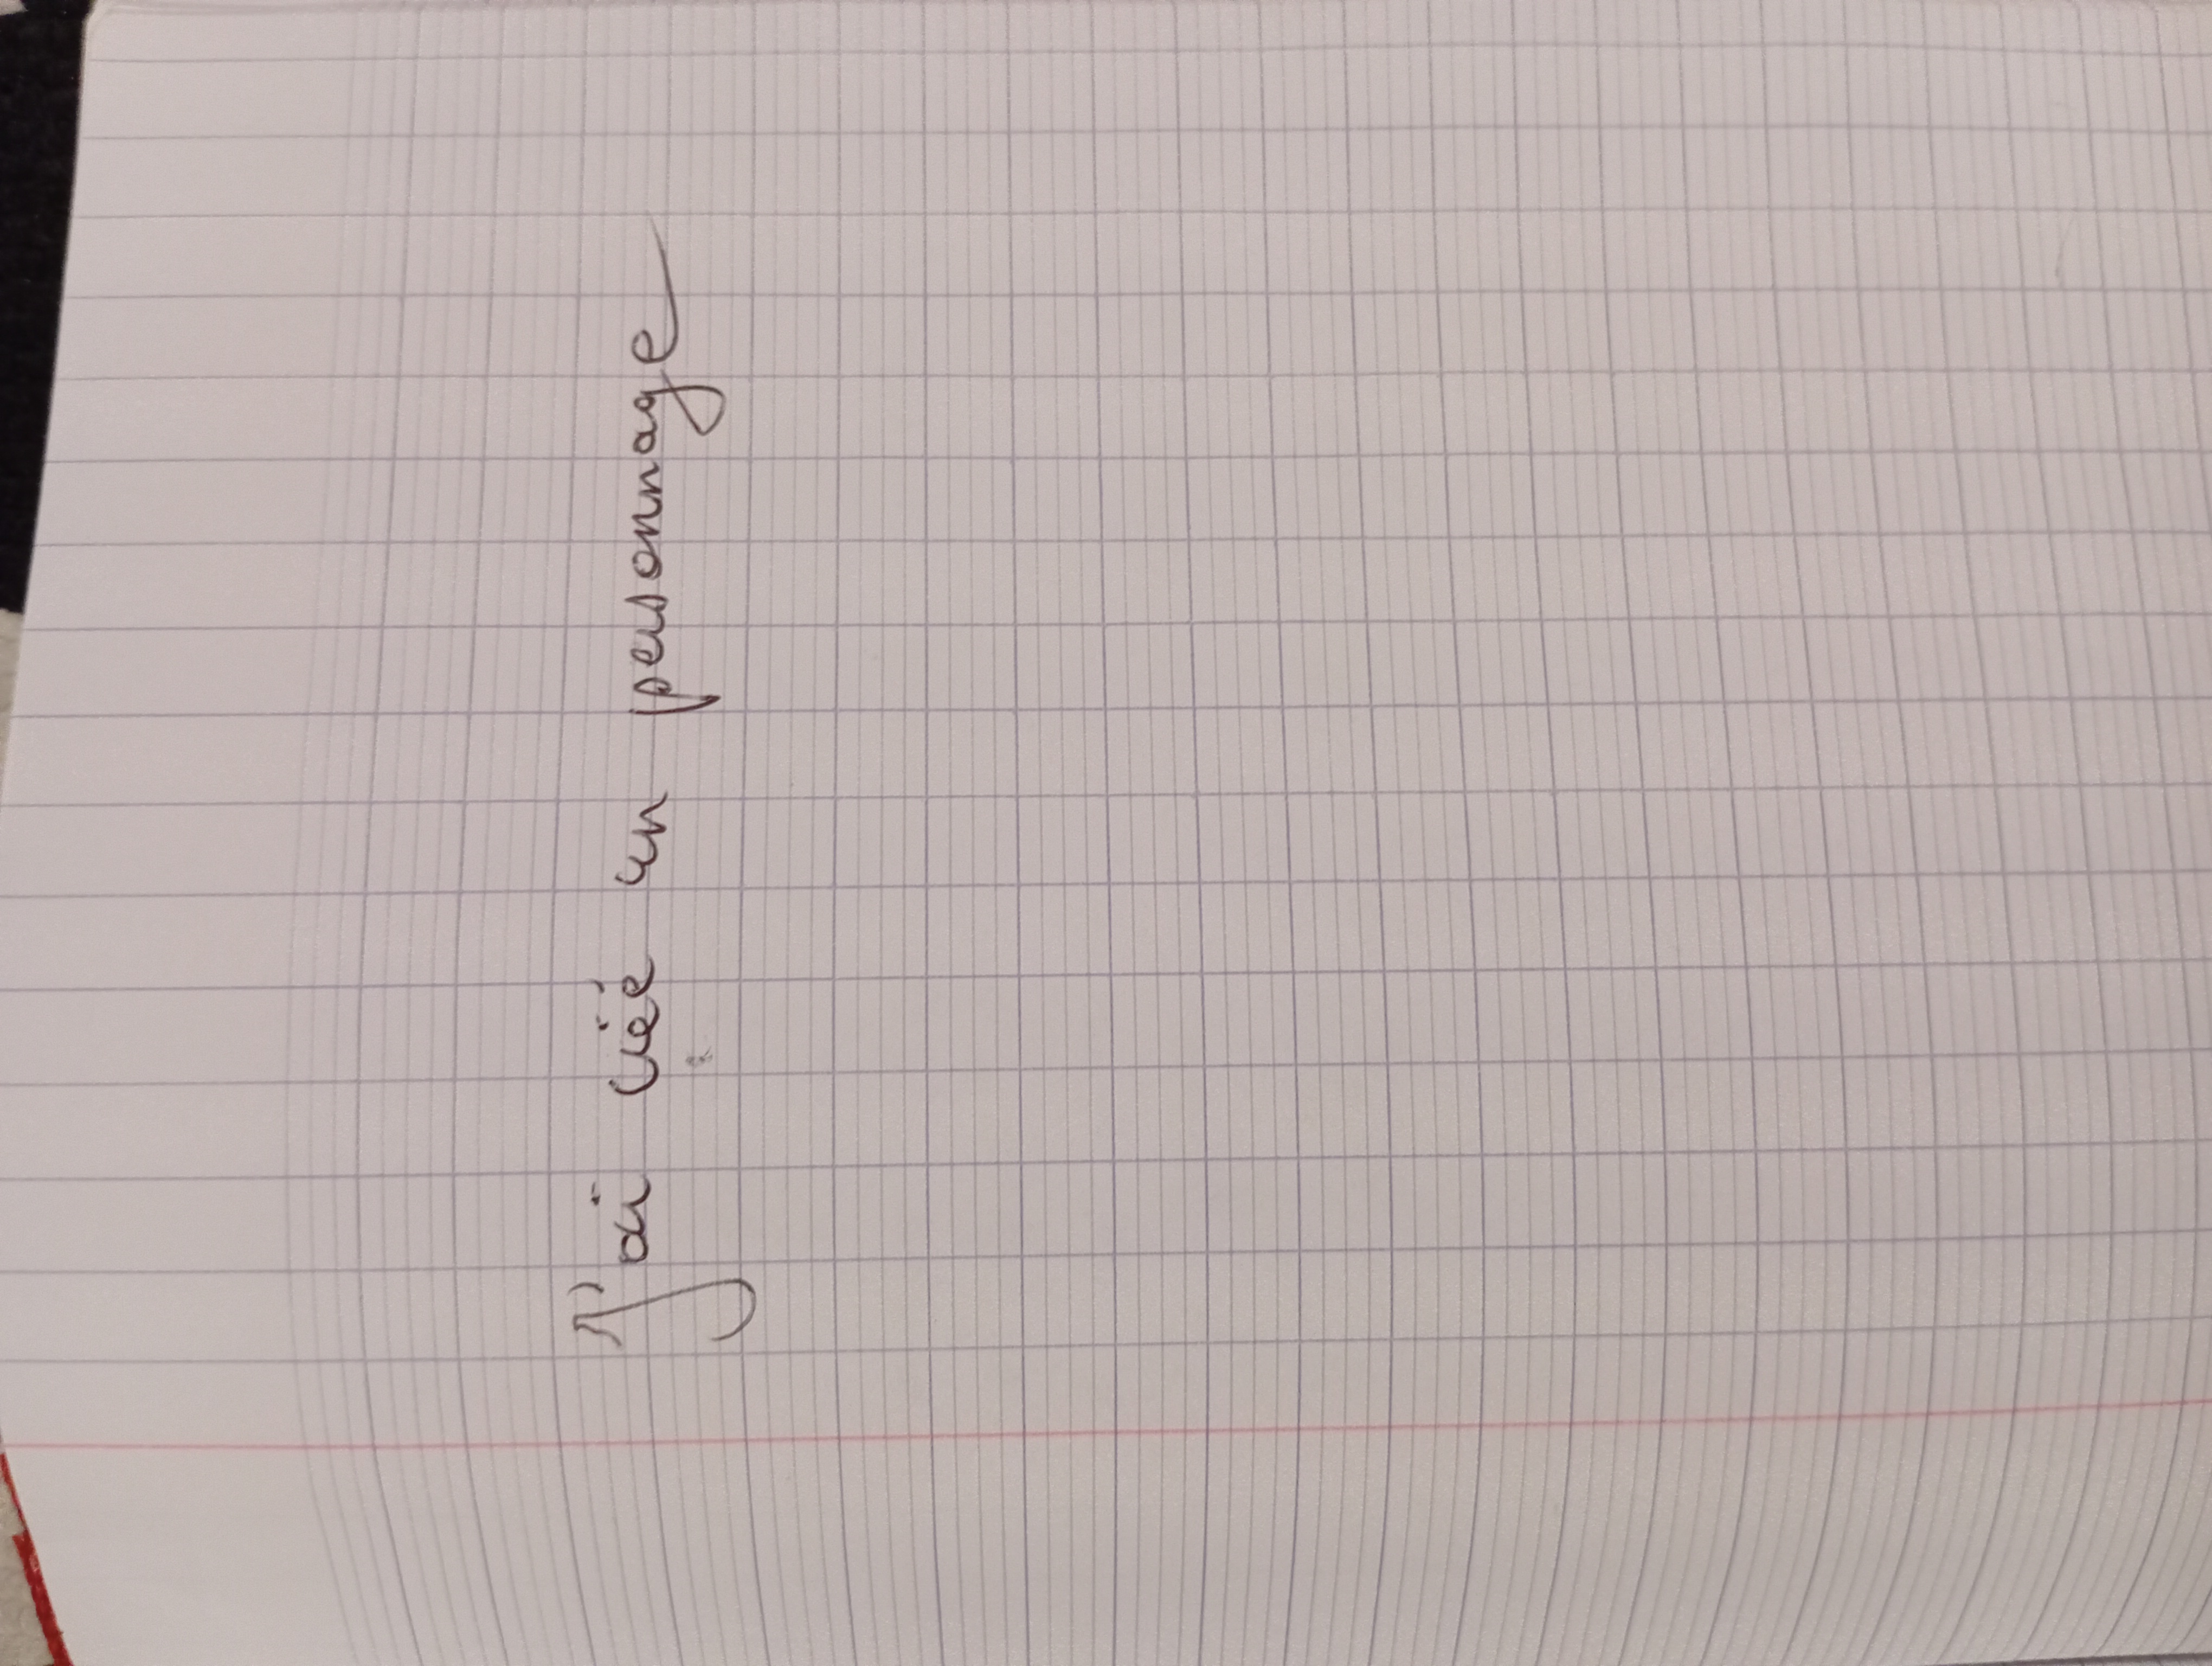 J'ai créé un personnage